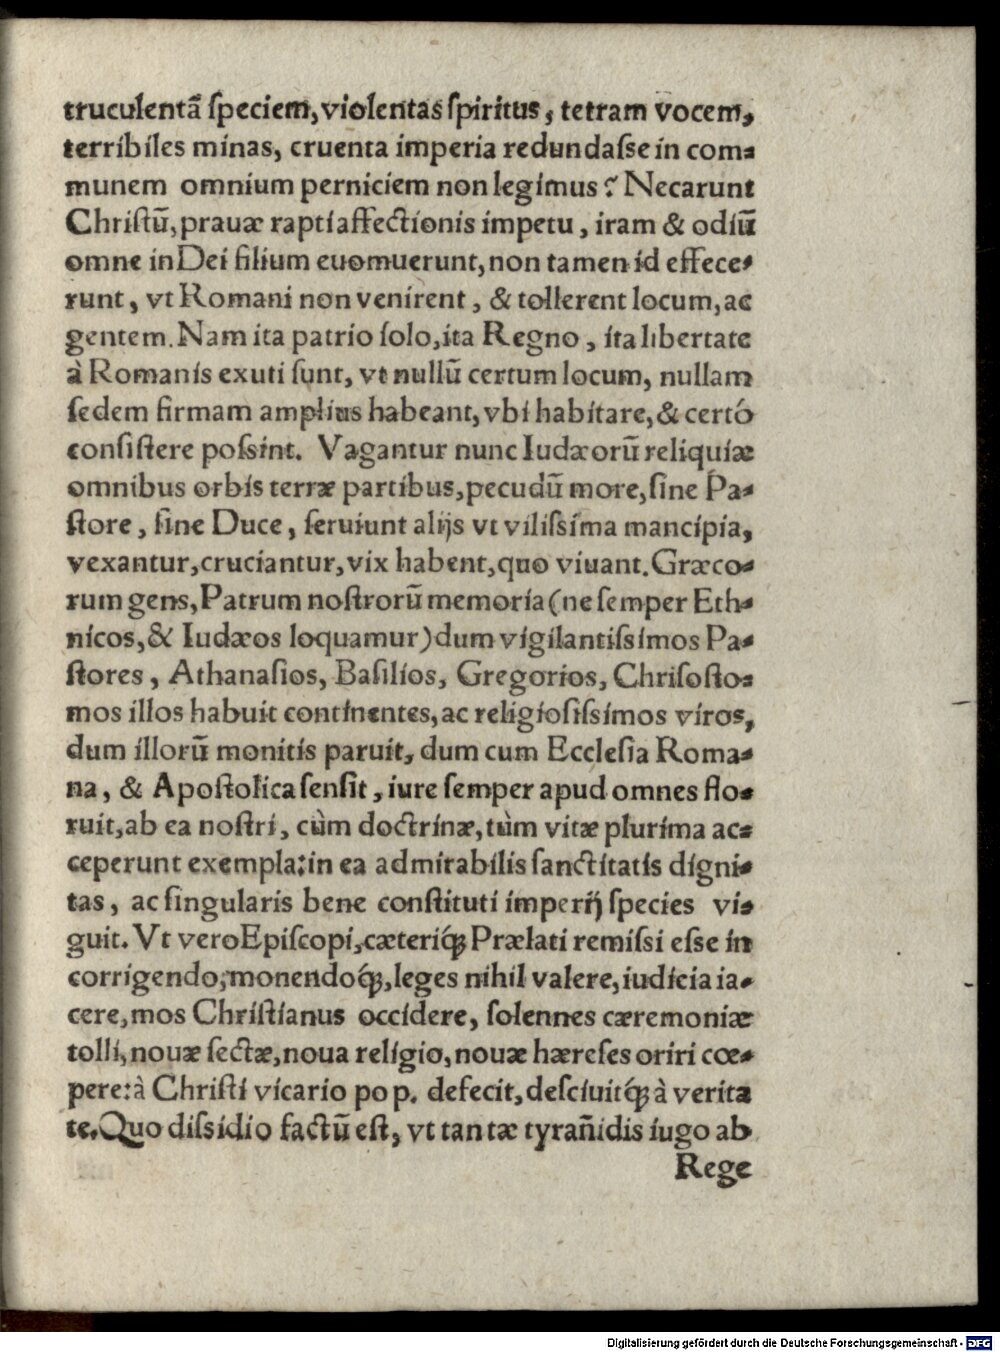 truculentā ſpeciem, violentas ſpiritus, tetram vocem,
terribiles minas, cruenta imperia redundaſſe in com-
munem omnium perniciem non legimus? Necarunt
Chriſtū, prauæ rapti affectionis impetu, iram & odiū
omne in Dei filium euomuerunt, non tamen id effece-
runt, vt Romani non venirent, & tollerent locum, ac
gentem. Nam ita patrio ſolo, ita Regno, ita libertate
à Romanis exuti ſunt, vt nullū certum locum, nullam
ſedem firmam amplius habeant, vbi habitare, & certò
conſiſtere poſsint. Vagantur nunc Iudæorū reliquiæ
omnibus orbis terræ partibus, pecudū more, ſine Pa-
ſtore, ſine Duce, ſeruiunt alijs vt viliſsima mancipia,
vexantur, cruciantur, vix habent, quo viuant. Græco-
rum gens, Patrum noſtrorū memoria (ne ſemper Eth-
nicos, & Iudæos loquamur) dum vigilantiſsimos Pa-
ſtores, Athanaſios, Baſilios, Gregorios, Chriſoſto-
mos illos habuit continentes, ac religioſiſsimos viros,
dum illorū monitis paruit, dum cum Eccleſia Roma-
na, & Apoſtolica ſenſit, iure ſemper apud omnes flo-
ruit, ab ea noſtri, cùm doctrinæ, tùm vitæ plurima ac-
ceperunt exempla: in ea admirabilis ſanctitatis digni-
tas, ac ſingularis bene conſtituti imperij ſpecies vi-
guit. Vt vero Epiſcopi, cæteriq́; Prælati remiſsi eſſe in
corrigendo, monendoq́;, leges nihil valere, iudicia ia-
cere, mos Chriſtianus occidere, ſolennes cæremoniæ
tolli, nouæ ſectæ, noua religio, nouæ hæreſes oriri cœ-
pere: à Chriſti vicario pop. defecit, deſciuitq́; à verita
te. Quo diſsidio factū eſt, vt tantæ tyrañidis iugo ab
Rege
Digitalisierung gefördert durch die Deutsche Forschungsgemeinschaft - DFG